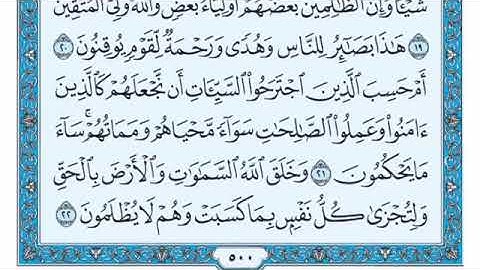 شَيْـًٔا وَإِنَّ ٱلظَّٰلِمِينَ بَعْضُهُمْ أَوْلِيَآءُ بَعْضٍ وَٱللَّهُ وَلِىُّ ٱلْمُتَّقِينَ
١٩ هَٰذَا بَصَٰٓئِرُ لِلنَّاسِ وَهُدًى وَرَحْمَةٌ لِّقَوْمٍ يُوقِنُونَ ٢٠
أَمْ حَسِبَ ٱلَّذِينَ ٱجْتَرَحُوا۟ ٱلسَّيِّـَٔاتِ أَن نَّجْعَلَهُمْ كَٱلَّذِينَ
ءَامَنُوا۟ وَعَمِلُوا۟ ٱلصَّٰلِحَٰتِ سَوَآءً مَّحْيَاهُمْ وَمَمَاتُهُمْ ۚ سَآءَ
مَا يَحْكُمُونَ ٢١ وَخَلَقَ ٱللَّهُ ٱلسَّمَٰوَٰتِ وَٱلْأَرْضَ بِٱلْحَقِّ
وَلِتُجْزَىٰ كُلُّ نَفْسٍۭ بِمَا كَسَبَتْ وَهُمْ لَا يُظْلَمُونَ ٢٢
٥٠٠